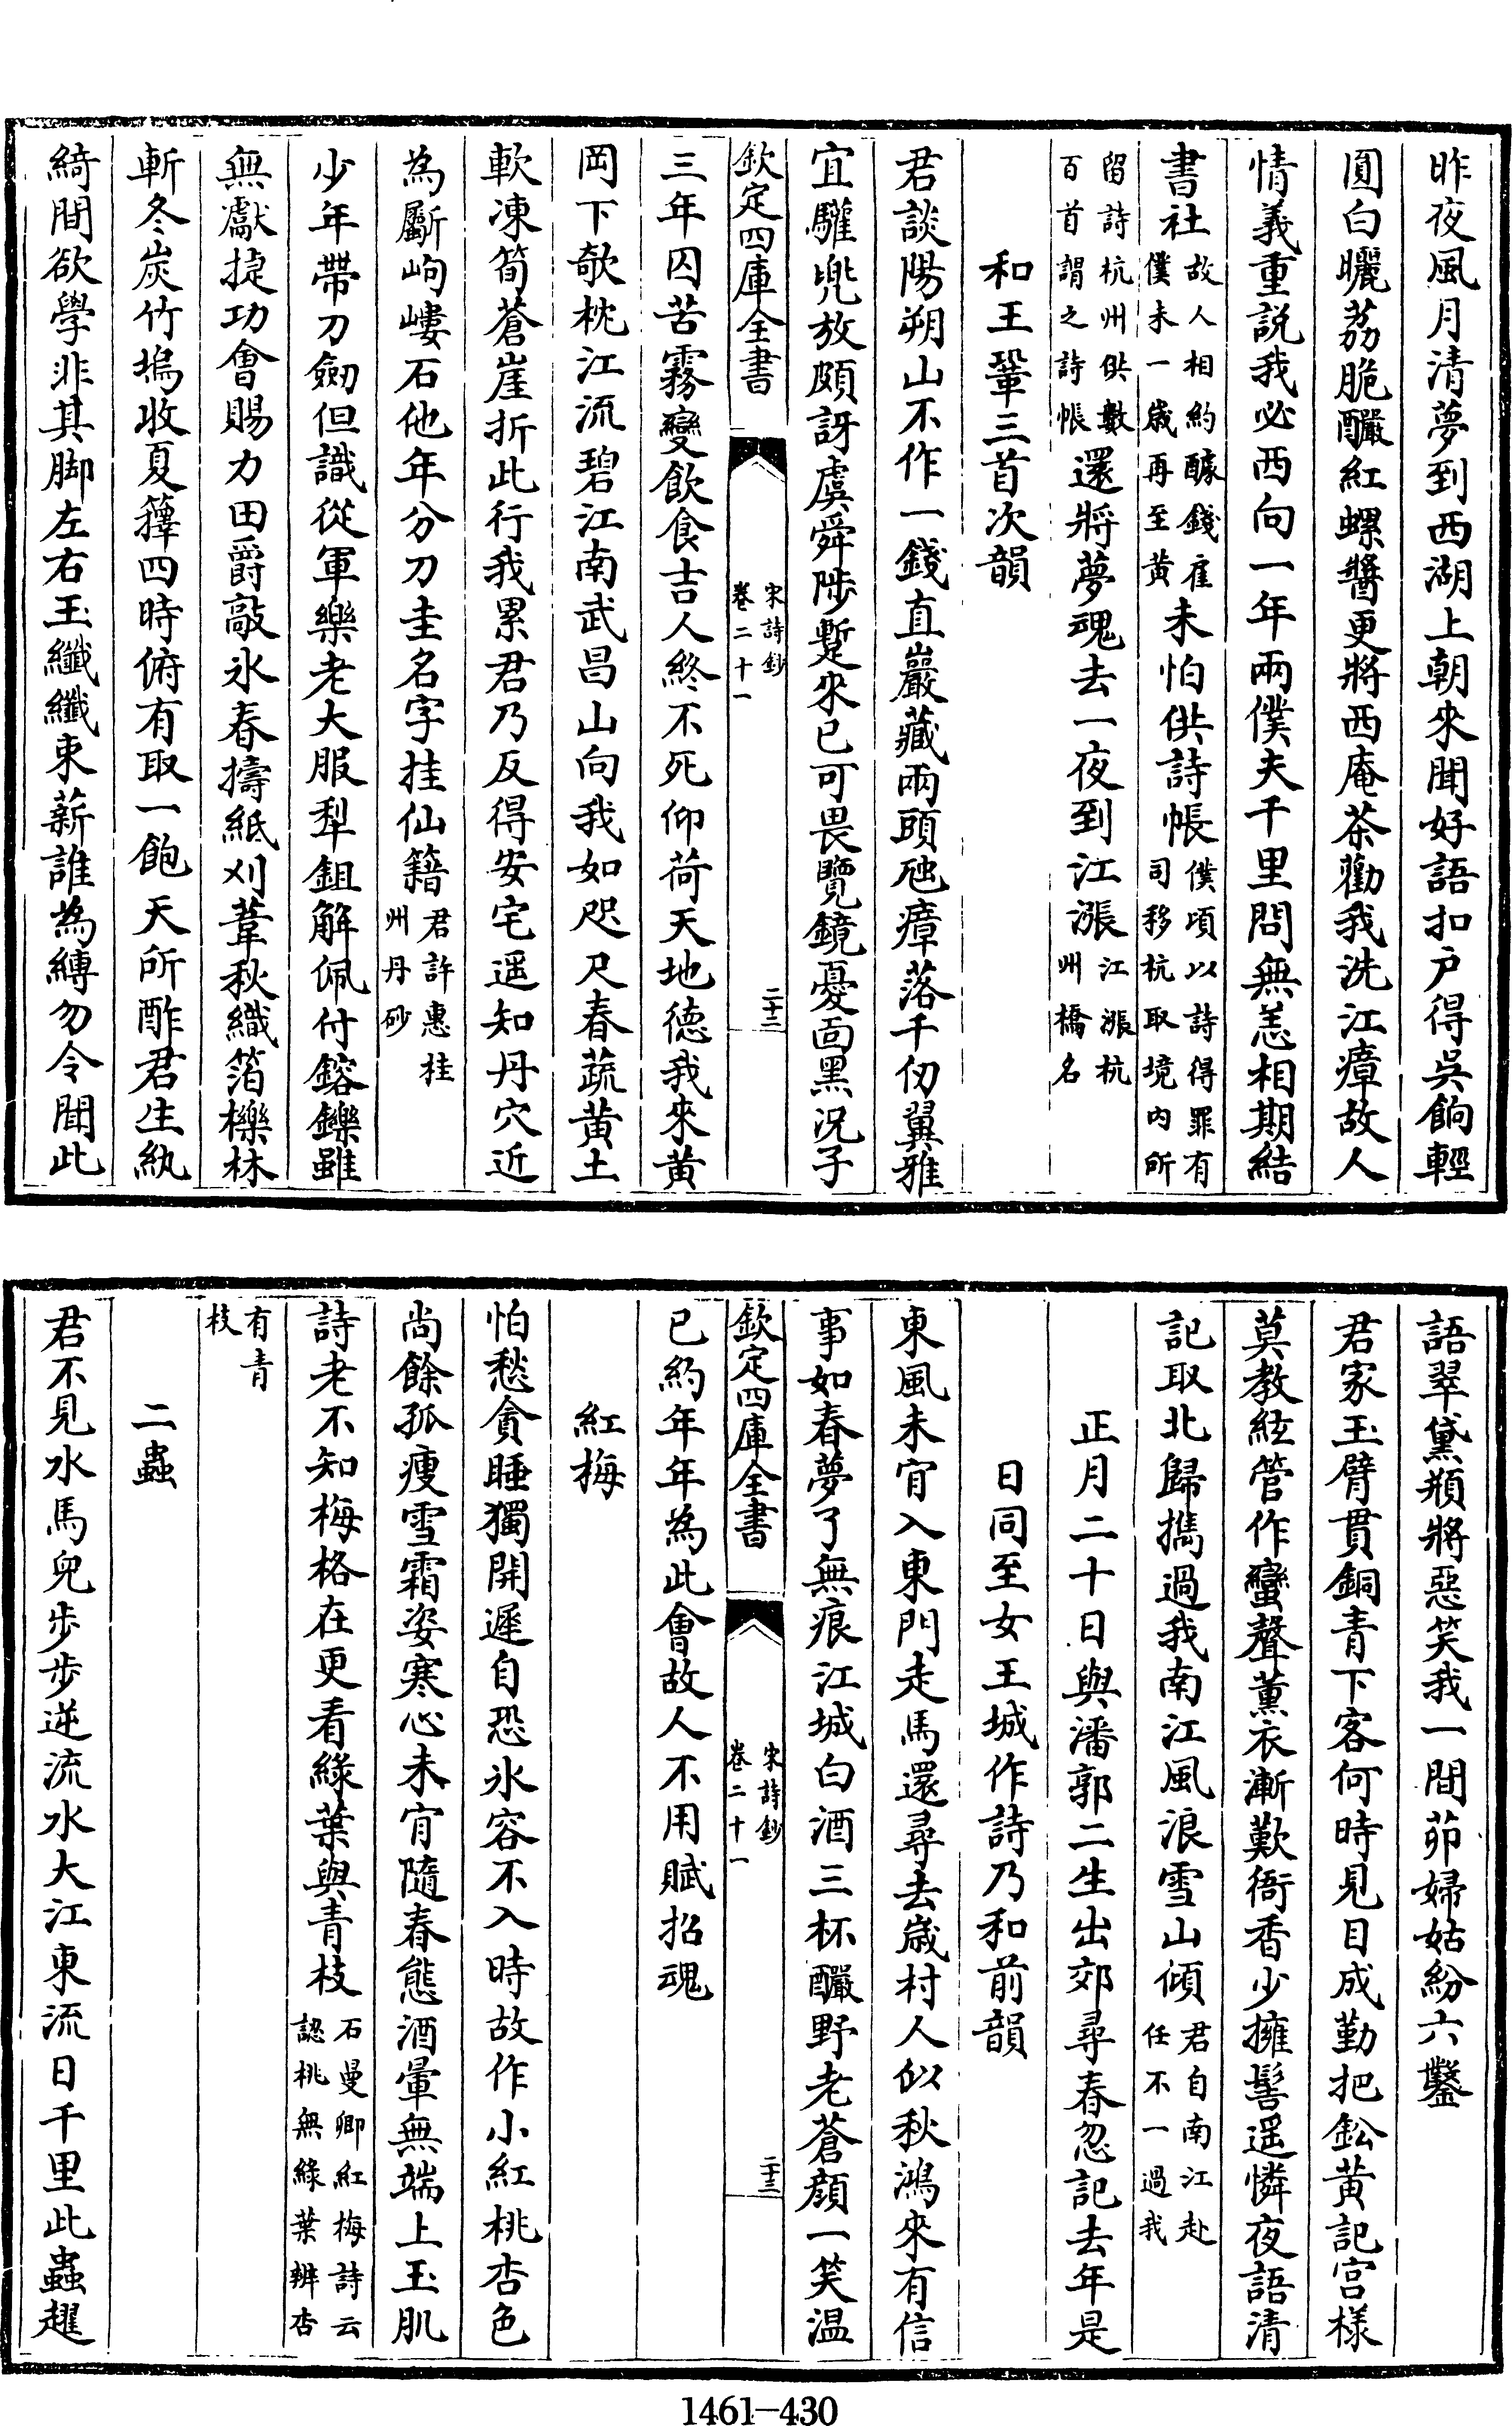 昨夜風月清夢到西湖上朝來聞好語扣户得吳餉輕
圓白曬荔脆釅紅螺醬更將西庵茶勸我洗江瘴故人
情義重說我必西向一年兩僕夫千里問無恙相期結
書社故人相約醵錢雇僕未一歲再至黃未怕供詩帳僕頃以詩得罪有司移杭取境内所
留詩杭州供數百首謂之詩帳還將夢魂去一夜到江漲江漲杭州橋名
和王鞏三首次韻
君談陽朔山不作一錢直巖藏兩頭虺瘴落千仞翼雅
宜驩兜放頗訝虞舜陟暫來已可畏覽鏡憂面黑況子
欽定四庫全書
宋詩鈔
卷二十一
二十三
三年囚苦霧變飲食吉人終不死仰荷天地德我來黃
岡下欹枕江流碧江南武昌山向我如咫尺春蔬黃土
軟凍筍蒼崖折此行我累君乃反得安宅遥知丹穴近
為劚岣嶁石他年分刀圭名字挂仙籍君許惠桂州丹砂
少年帶刀劒但識從軍樂老大服犂鉏解佩付鎔鑠雖
無獻捷功會賜力田爵敲氷春擣紙刈葦秋織箔櫟林
斬冬炭竹塢收夏籜四時俯有取一飽天所酢君生紈
綺間欲學非其脚左右玉纖纖束薪誰為縛勿令聞此
語翠黛頩將惡笑我一間茆婦姑紛六鑿
君家玉臂貫銅青下客何時見目成勤把鉛黃記宫樣
莫教絃管作蠻聲薰衣漸歎衙香少擁髻遥憐夜語清
記取北歸擕過我南江風浪雪山傾君自南江赴任不一過我
正月二十日與潘郭二生出郊尋春忽記去年是
日同至女王城作詩乃和前韻
東風未肯入東門走馬還尋去歲村人似秋鴻來有信
事如春夢了無痕江城白酒三杯釅野老蒼顔一笑温
欽定四庫全書
宋詩鈔
卷二十一
二十三
已約年年為此會故人不用賦招魂
紅梅
怕愁貪睡獨開遲自恐氷容不入時故作小紅桃杏色
尚餘孤瘦雪霜姿寒心未肯隨春態酒暈無端上玉肌
詩老不知梅格在更看緑葉與青枝石曼卿紅梅詩云認桃無緑葉辨杏
有青枝
二蟲
君不見水馬兒步步逆流水大江東流日千里此蟲趯
1461-430